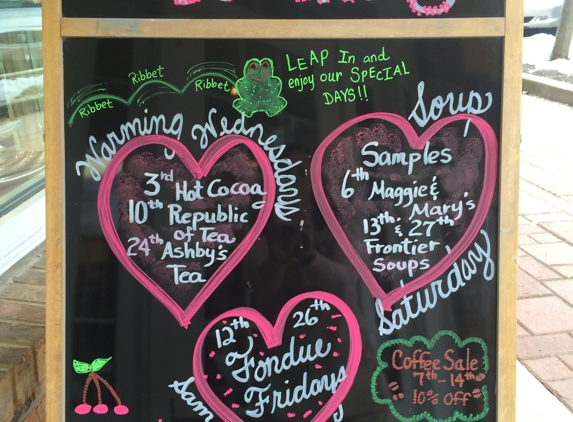 Ribbet
Ribbet
Ribbet
LEAP In and
enjoy our SPECIAL
DAYS!!
Warming Wednesdays
3rd Hot Cocoa
10th Republic
of Tea
24th Ashby's
Tea
Soup
Samples
6th Maggie &
Mary's
13th & 27th
Frontier
Soups
Saturday
12th 26th
Fondue
Fridays
Sam
Coffee Sale
7th - 14th
10% Off